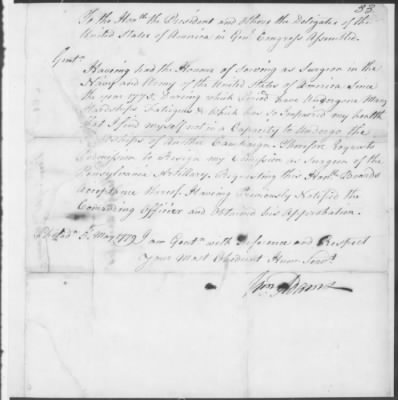 33
To the Honble the President and others the Delegates of the
United States of America in Genl Congress Assembled.
Gentn
Haveing had the Honour of Serving as Surgeon in the
Navy and Army of the United States of America Since
the year 1775 During which Period have Undergone Many
Hardships Fatigues & which has so Impared my health
that I find myself not in a Capacity to Undergo the
Hardships of Another Campaign. Therefore
to Resign my Commission as Surgeon of the
Pensylvania Artillary. Requesting this Honble Boards
Acceptance thereof. Haveing Previously Notified the
Comanding Officer and Obtained his Approbation.
Philadaa 5th May 1779 I am Gentn with Deference and Respect
Your Most Obedient Hume Servt
Wm Adams